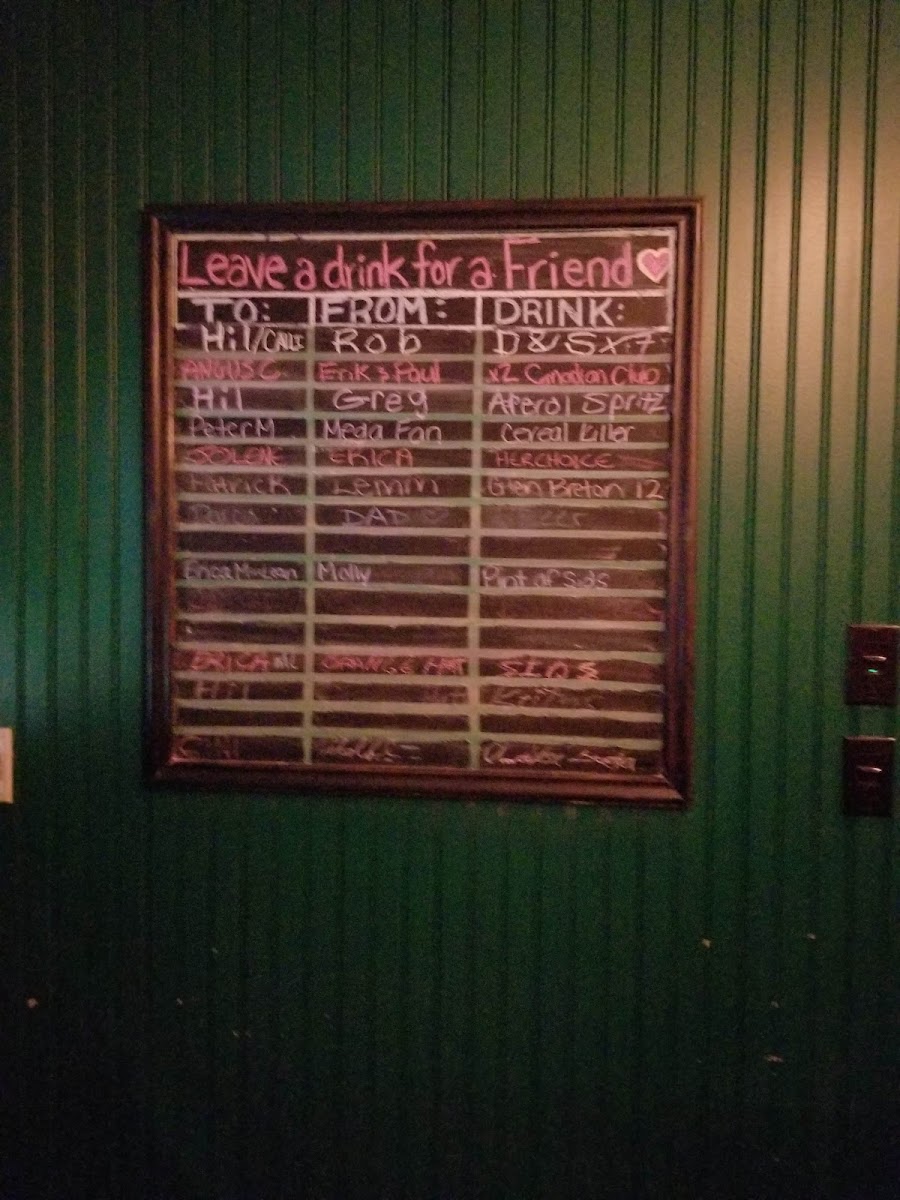 Leave a drink for a Friend
TO: FROM: DRINK:
Hil/CALI Rob D&S x 7
ANGUS C Erik & Paul x2 Canadian Club
Hil Greg Aperol Spritz
Peter M Mega Fan Cereal Killer
JOLENE ERICA HER CHOICE
Patrick Lemm Glen Breton 12
DAD
Erica MacLean Molly Pint of Sids
ERICA ML ORANGE HAT SIDS
Hil